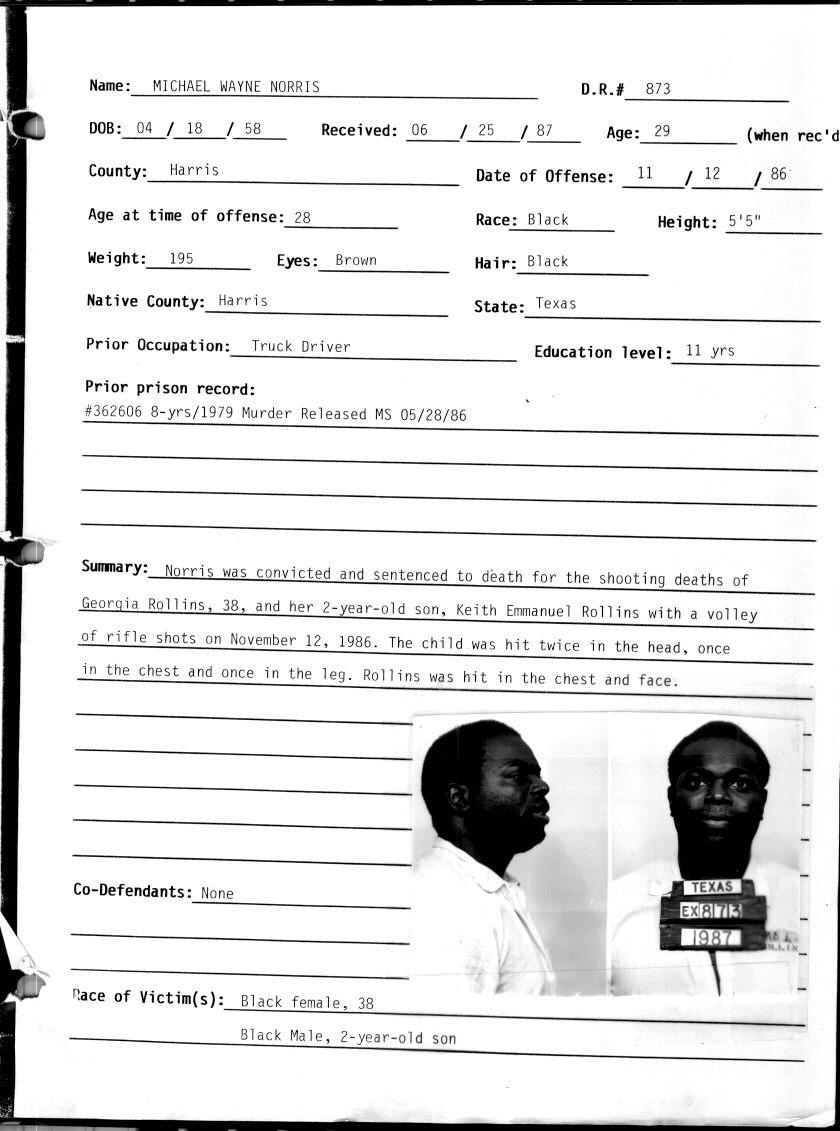 Name: MICHAEL WAYNE NORRIS D.R.# 873
DOB: 04 / 18 / 58 Received: 06 / 25 / 87 Age: 29 (when rec'd
County: Harris Date of Offense: 11 / 12 / 86
Age at time of offense: 28 Race: Black Height: 5'5"
Weight: 195 Eyes: Brown Hair: Black
Native County: Harris State: Texas
Prior Occupation: Truck Driver Education level: 11 yrs
Prior prison record:
#362606 8-yrs/1979 Murder Released MS 05/28/86
Summary: Norris was convicted and sentenced to death for the shooting deaths of
Georgia Rollins, 38, and her 2-year-old son, Keith Emmanuel Rollins with a volley
of rifle shots on November 12, 1986. The child was hit twice in the head, once
in the chest and once in the leg. Rollins was hit in the chest and face.
TEXAS
EX 873
1987
Co-Defendants: None
Race of Victim(s): Black female, 38
Black Male, 2-year-old son